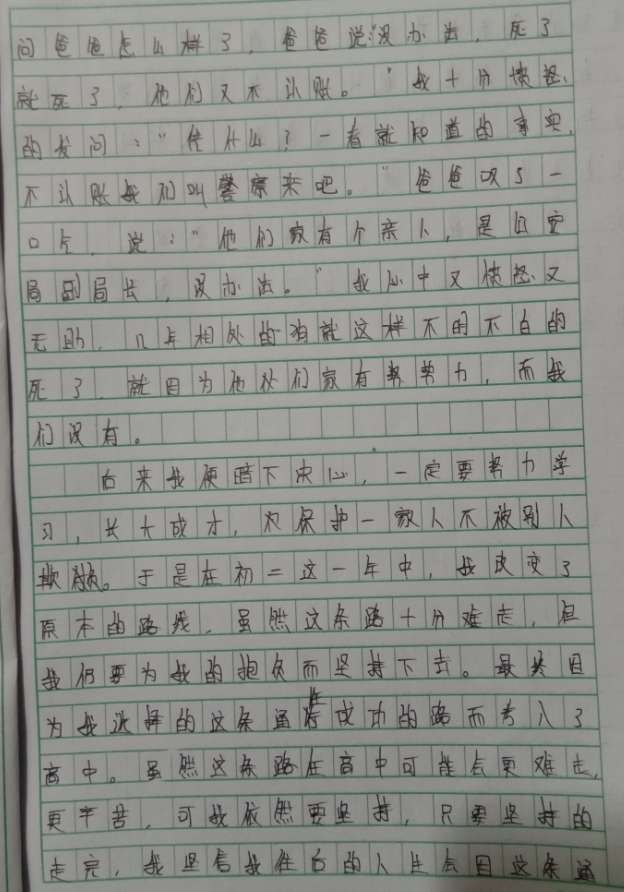 问爸爸怎么样了，爸爸说："没办法，死了
就死了，他们又不认账。"我十分愤怒
的发问："凭什么？一看就知道的事实，
不认账我们叫警察来吧。"爸爸叹了一
口气，说："他们家有个亲人，是公安
局副局长，没办法。"我心中又愤怒又
无助，几年相处的狗就这样不明不白的
死了，就因为他们家有势力，而我
们没有。
后来我便暗下决心，一定要努力学
习，长大成才，为保护一家人不被别人
欺负。于是在初二这一年中，我改变了
原本的路线，虽然这条路十分难走，但
我仍要为我的抱负而坚持下去。最终因
为我选择的这条通往成功的路而考入了
高中。虽然这条路在高中可能会更难走，
更辛苦，可我依然要坚持，只要坚持的
走完，我坚信我往后的人生会因这条通